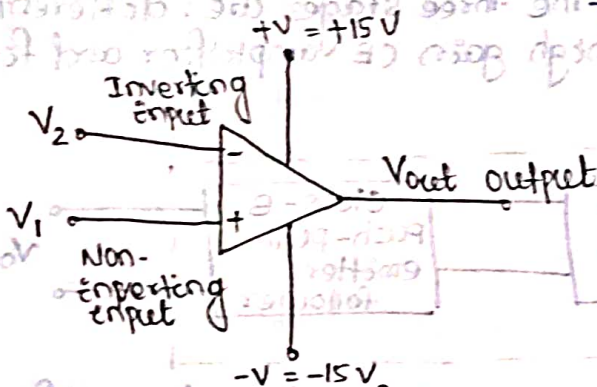 +V = +15V
Inverting
input
V2
-
Vout output
V1
+
Non-
inverting
input
-V = -15V